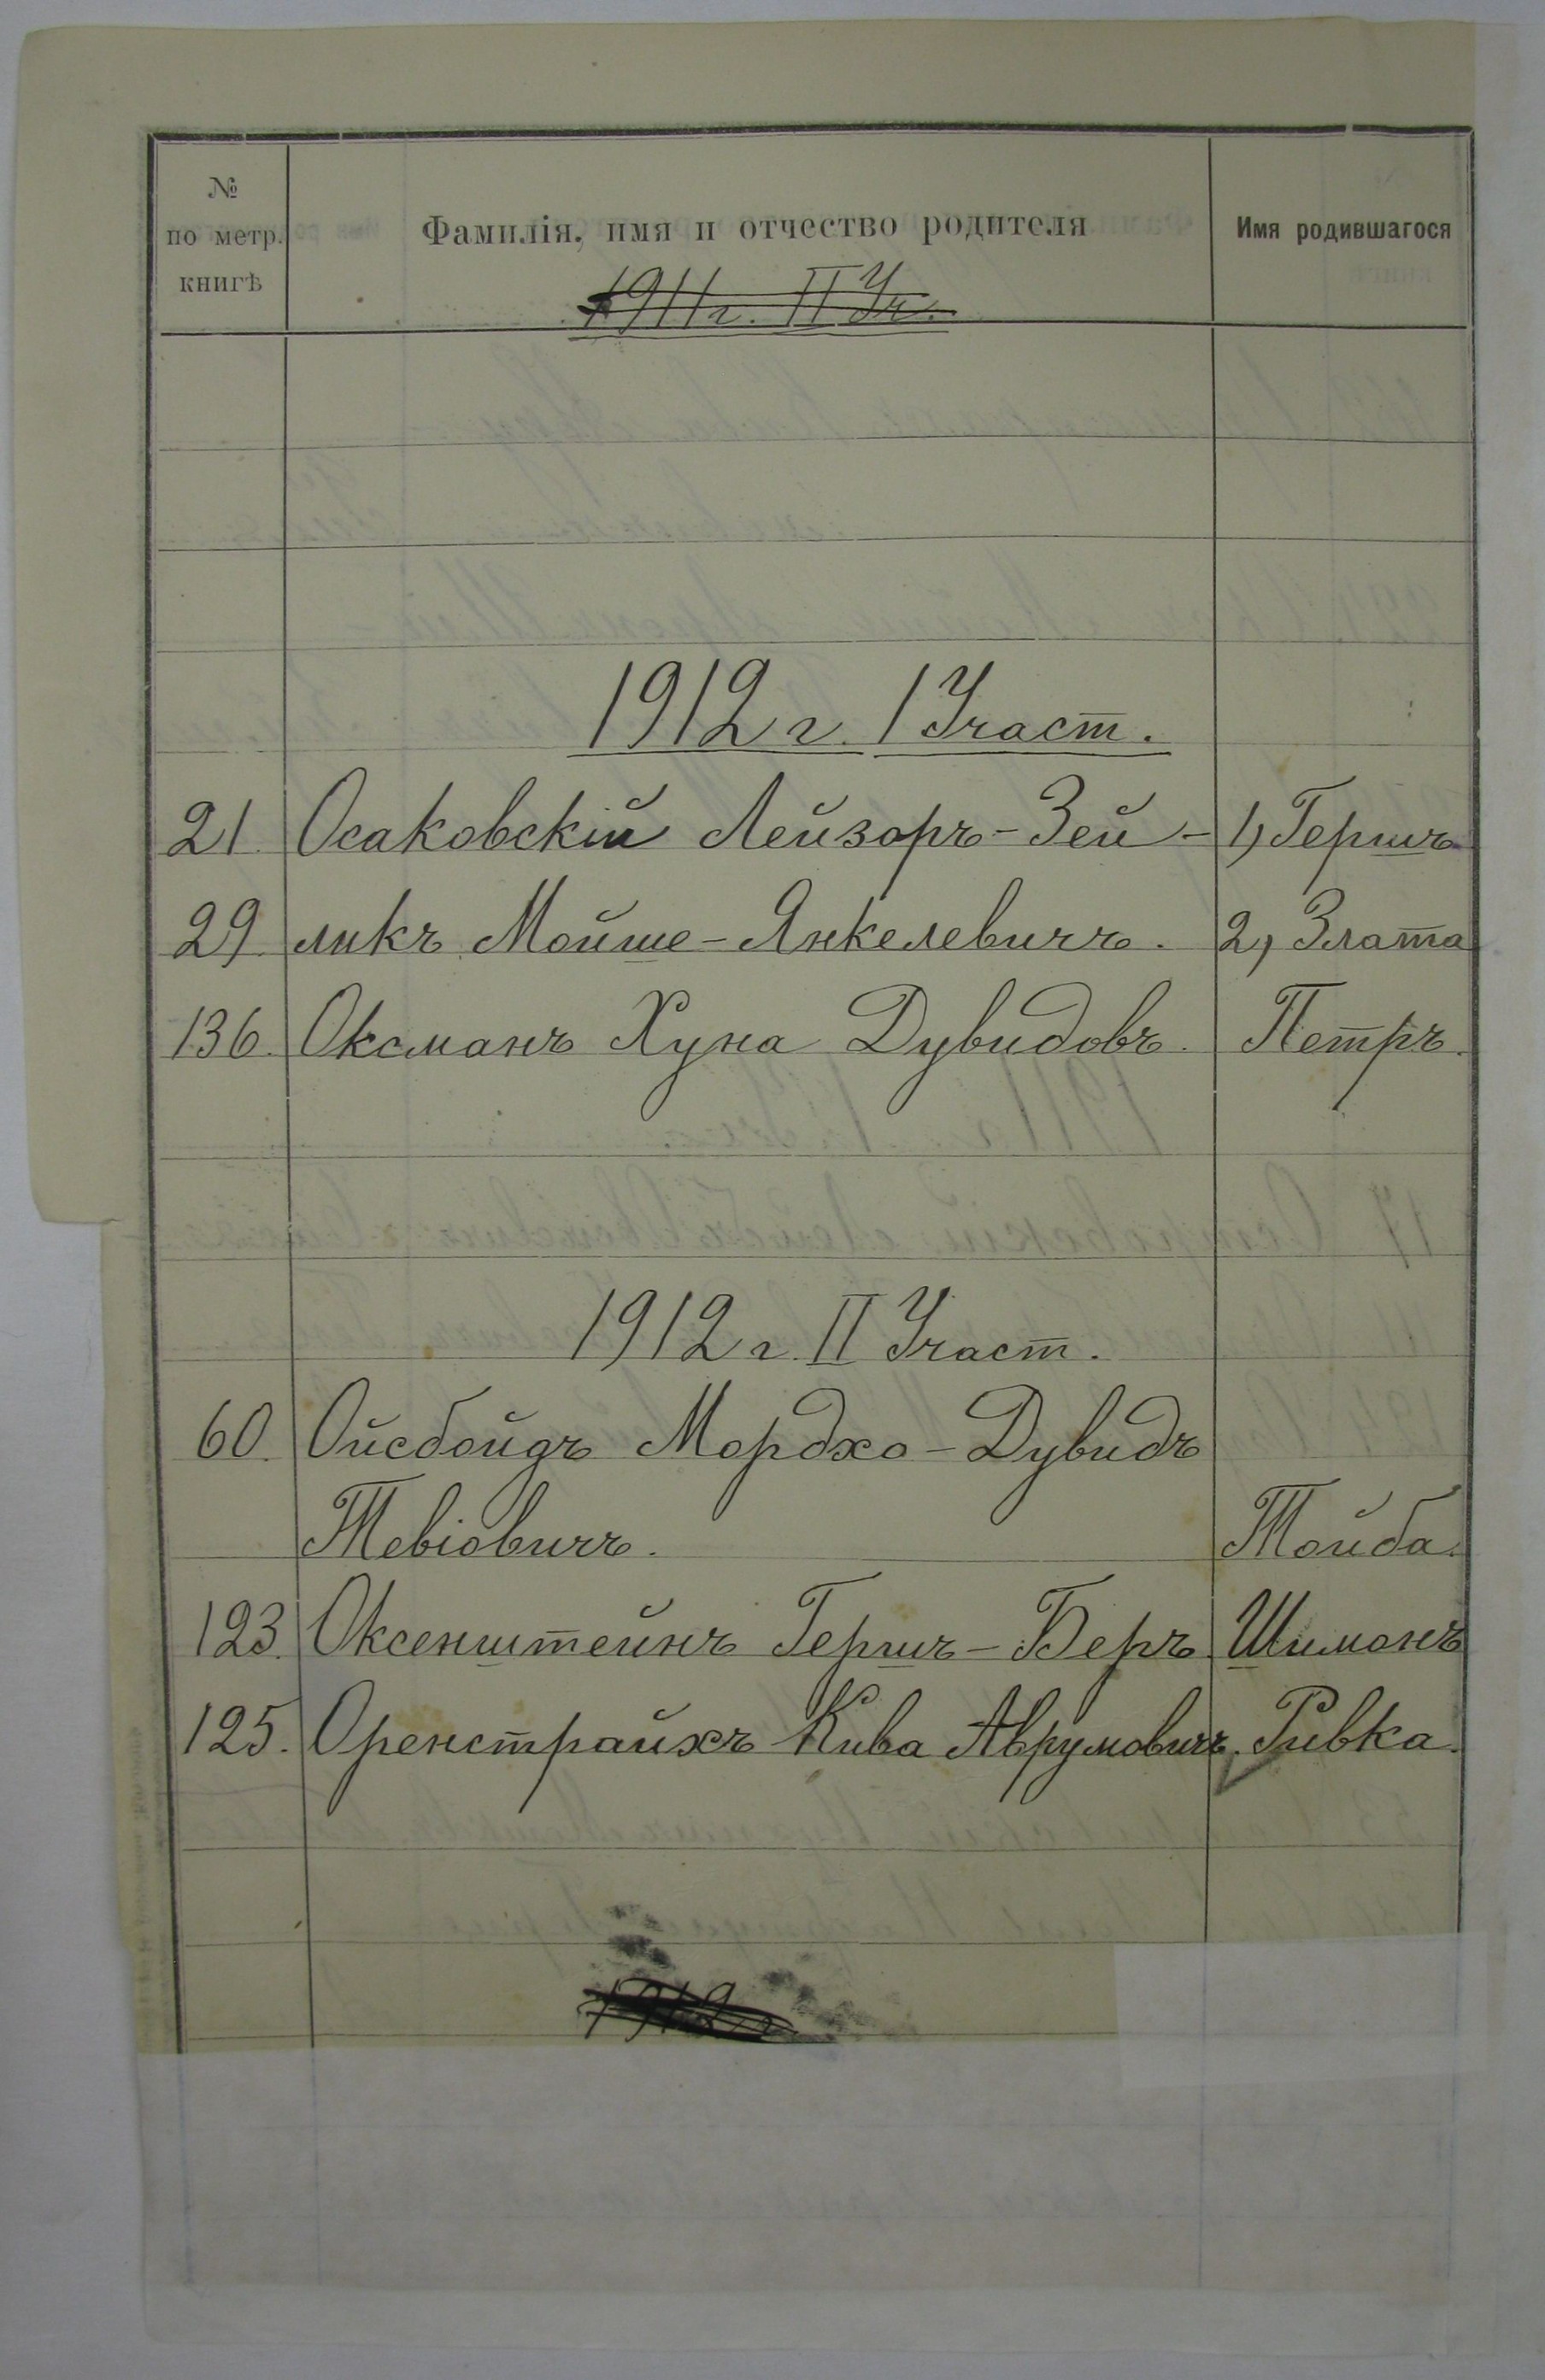 № по метр. книгѣ Фамилія, имя и отчество родителя Имя родившагося
1911 г. II Уч.
1912 г. I Участ.
21 Осаковскій Лейзоръ-Зей- 1) Гершъ
29 ликъ Мойше-Янкелевичъ. 2) Злата
136. Оксманъ Хуна Дувидовъ. Петръ.
1912 г. II Участ.
60. Ойсбойдъ Мордхо-Дувидъ
Тевіовичъ. Тойба.
123. Оксенштейнъ Гершъ-Беръ. Шимонъ
125. Оренстрайхъ Кива Аврумовичъ. Ривка.
1912